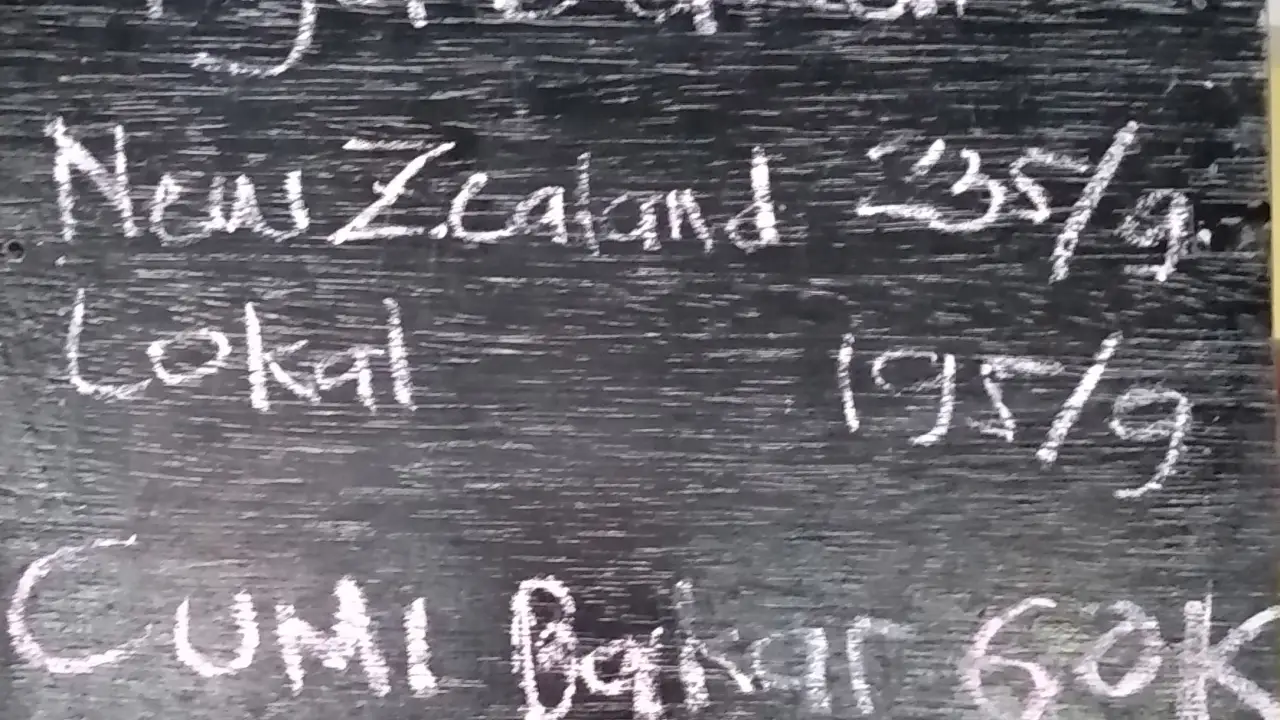 New Zealand 235/g.
Lokal 195/g
CUMI Bakar 60K